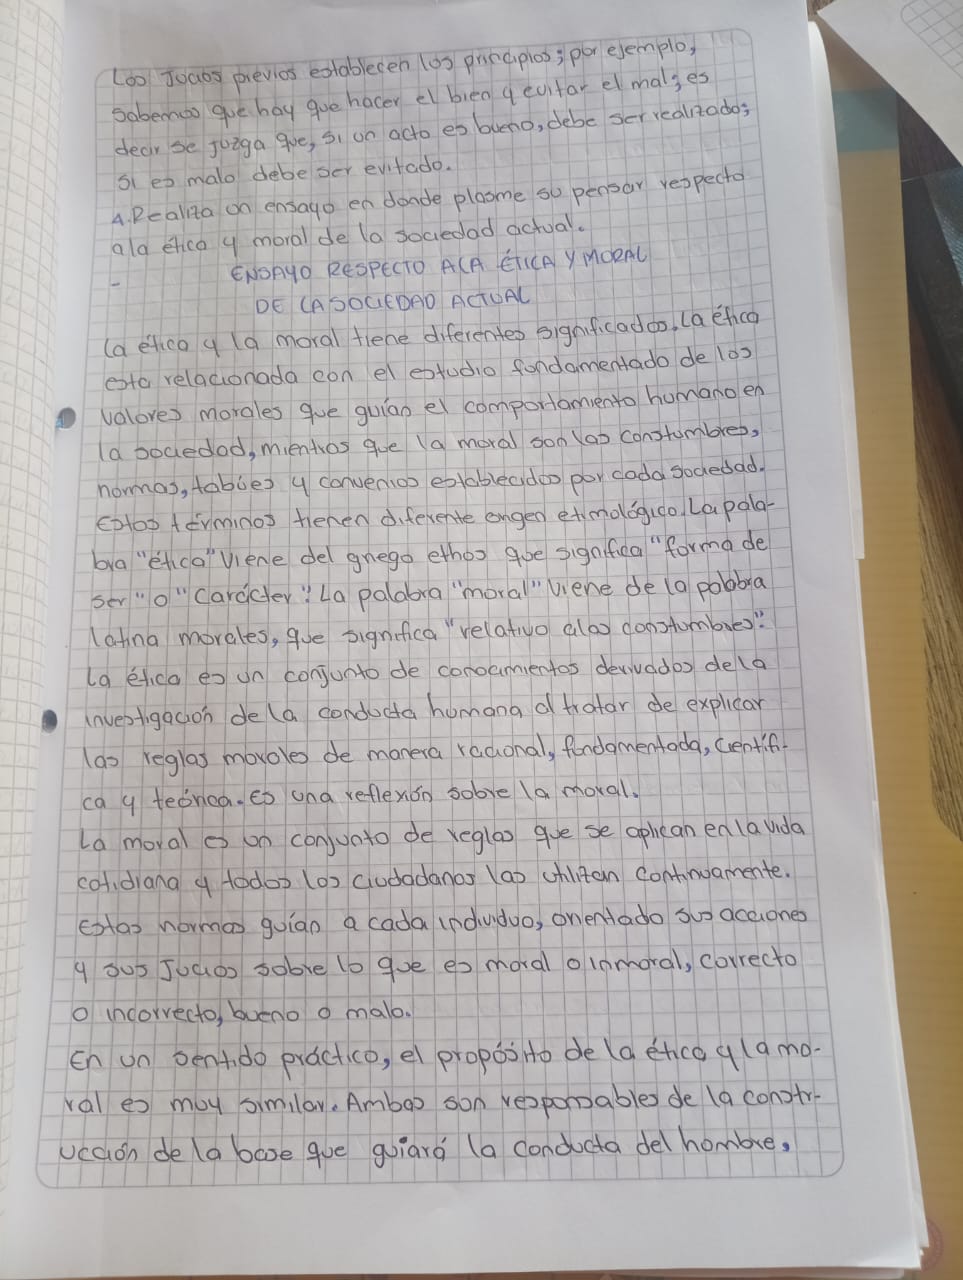 Los Jucios previos establecen los principios; por ejemplo,
sabemos que hay que hacer el bien y evitar el mal; es
decir se juzga que, si un acto es bueno, debe ser realizado;
si es malo debe ser evitado.
4. Realiza un ensayo en donde plasme su pensar respecto
ala ética y moral de la sociedad actual.
- ENSAYO RESPECTO ALA ÉTICA Y MORAL
DE LA SOCIEDAD ACTUAL
La ética y la moral tiene diferentes significados. La ética
esta relacionada con el estudio fundamentado de los
valores morales que guían el comportamiento humano en
la sociedad, mientras que la moral son las constumbres,
normas, tabúes y convenios establecidos por cada sociedad.
Estos términos tienen diferente origen etimológico. La pala-
bra "ética" viene del griego ethos que significa "forma de
ser" o "carácter". La palabra "moral" viene de la palabra
latina morales, que significa "relativo alas constumbres".
La ética es un conjunto de conocimientos derivados dela
investigación de la conducta humana al tratar de explicar
las reglas morales de manera racional, fundamentada, científi-
ca y teórica. Es una reflexión sobre la moral.
La moral es un conjunto de reglas que se aplican en la vida
cotidiana y todos los ciudadanos las utilizan continuamente.
Estas normas guían a cada individuo, orientado sus acciones
y sus Jucios sobre lo que es moral o inmoral, correcto
o incorrecto, bueno o malo.
En un sentido práctico, el propósito de la ética y la mo-
ral es muy similar. Ambas son responsables de la constr-
ucción de la base que guiará la conducta del hombre,